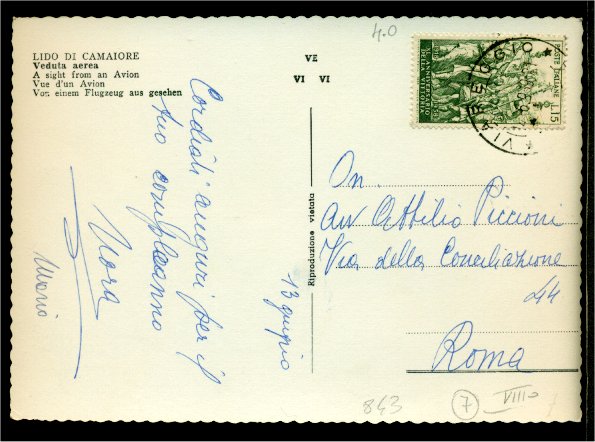 LIDO DI CAMAIORE
Veduta aerea
A sight from an Avion
Vue d'un Avion
Von einem Flugzeug aus gesehen
VE
VI VI
4.0
POSTE ITALIANE L.15
VIAREGGIO
Cordiali auguri per il
tuo compleanno
Nora
Mario
13 giugno
Riproduzione vietata
On.
Avv Attilio Piccioni
Via della Conciliazione
44
Roma
843
7
VIII